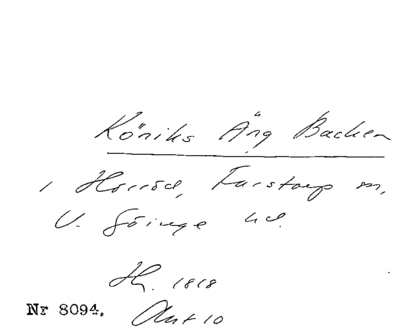 Köniks Äng Backen
i Horröd, Farstorp sn,
V. Göinge hd.
Hh. 1818
Nr 8094. Akt 10